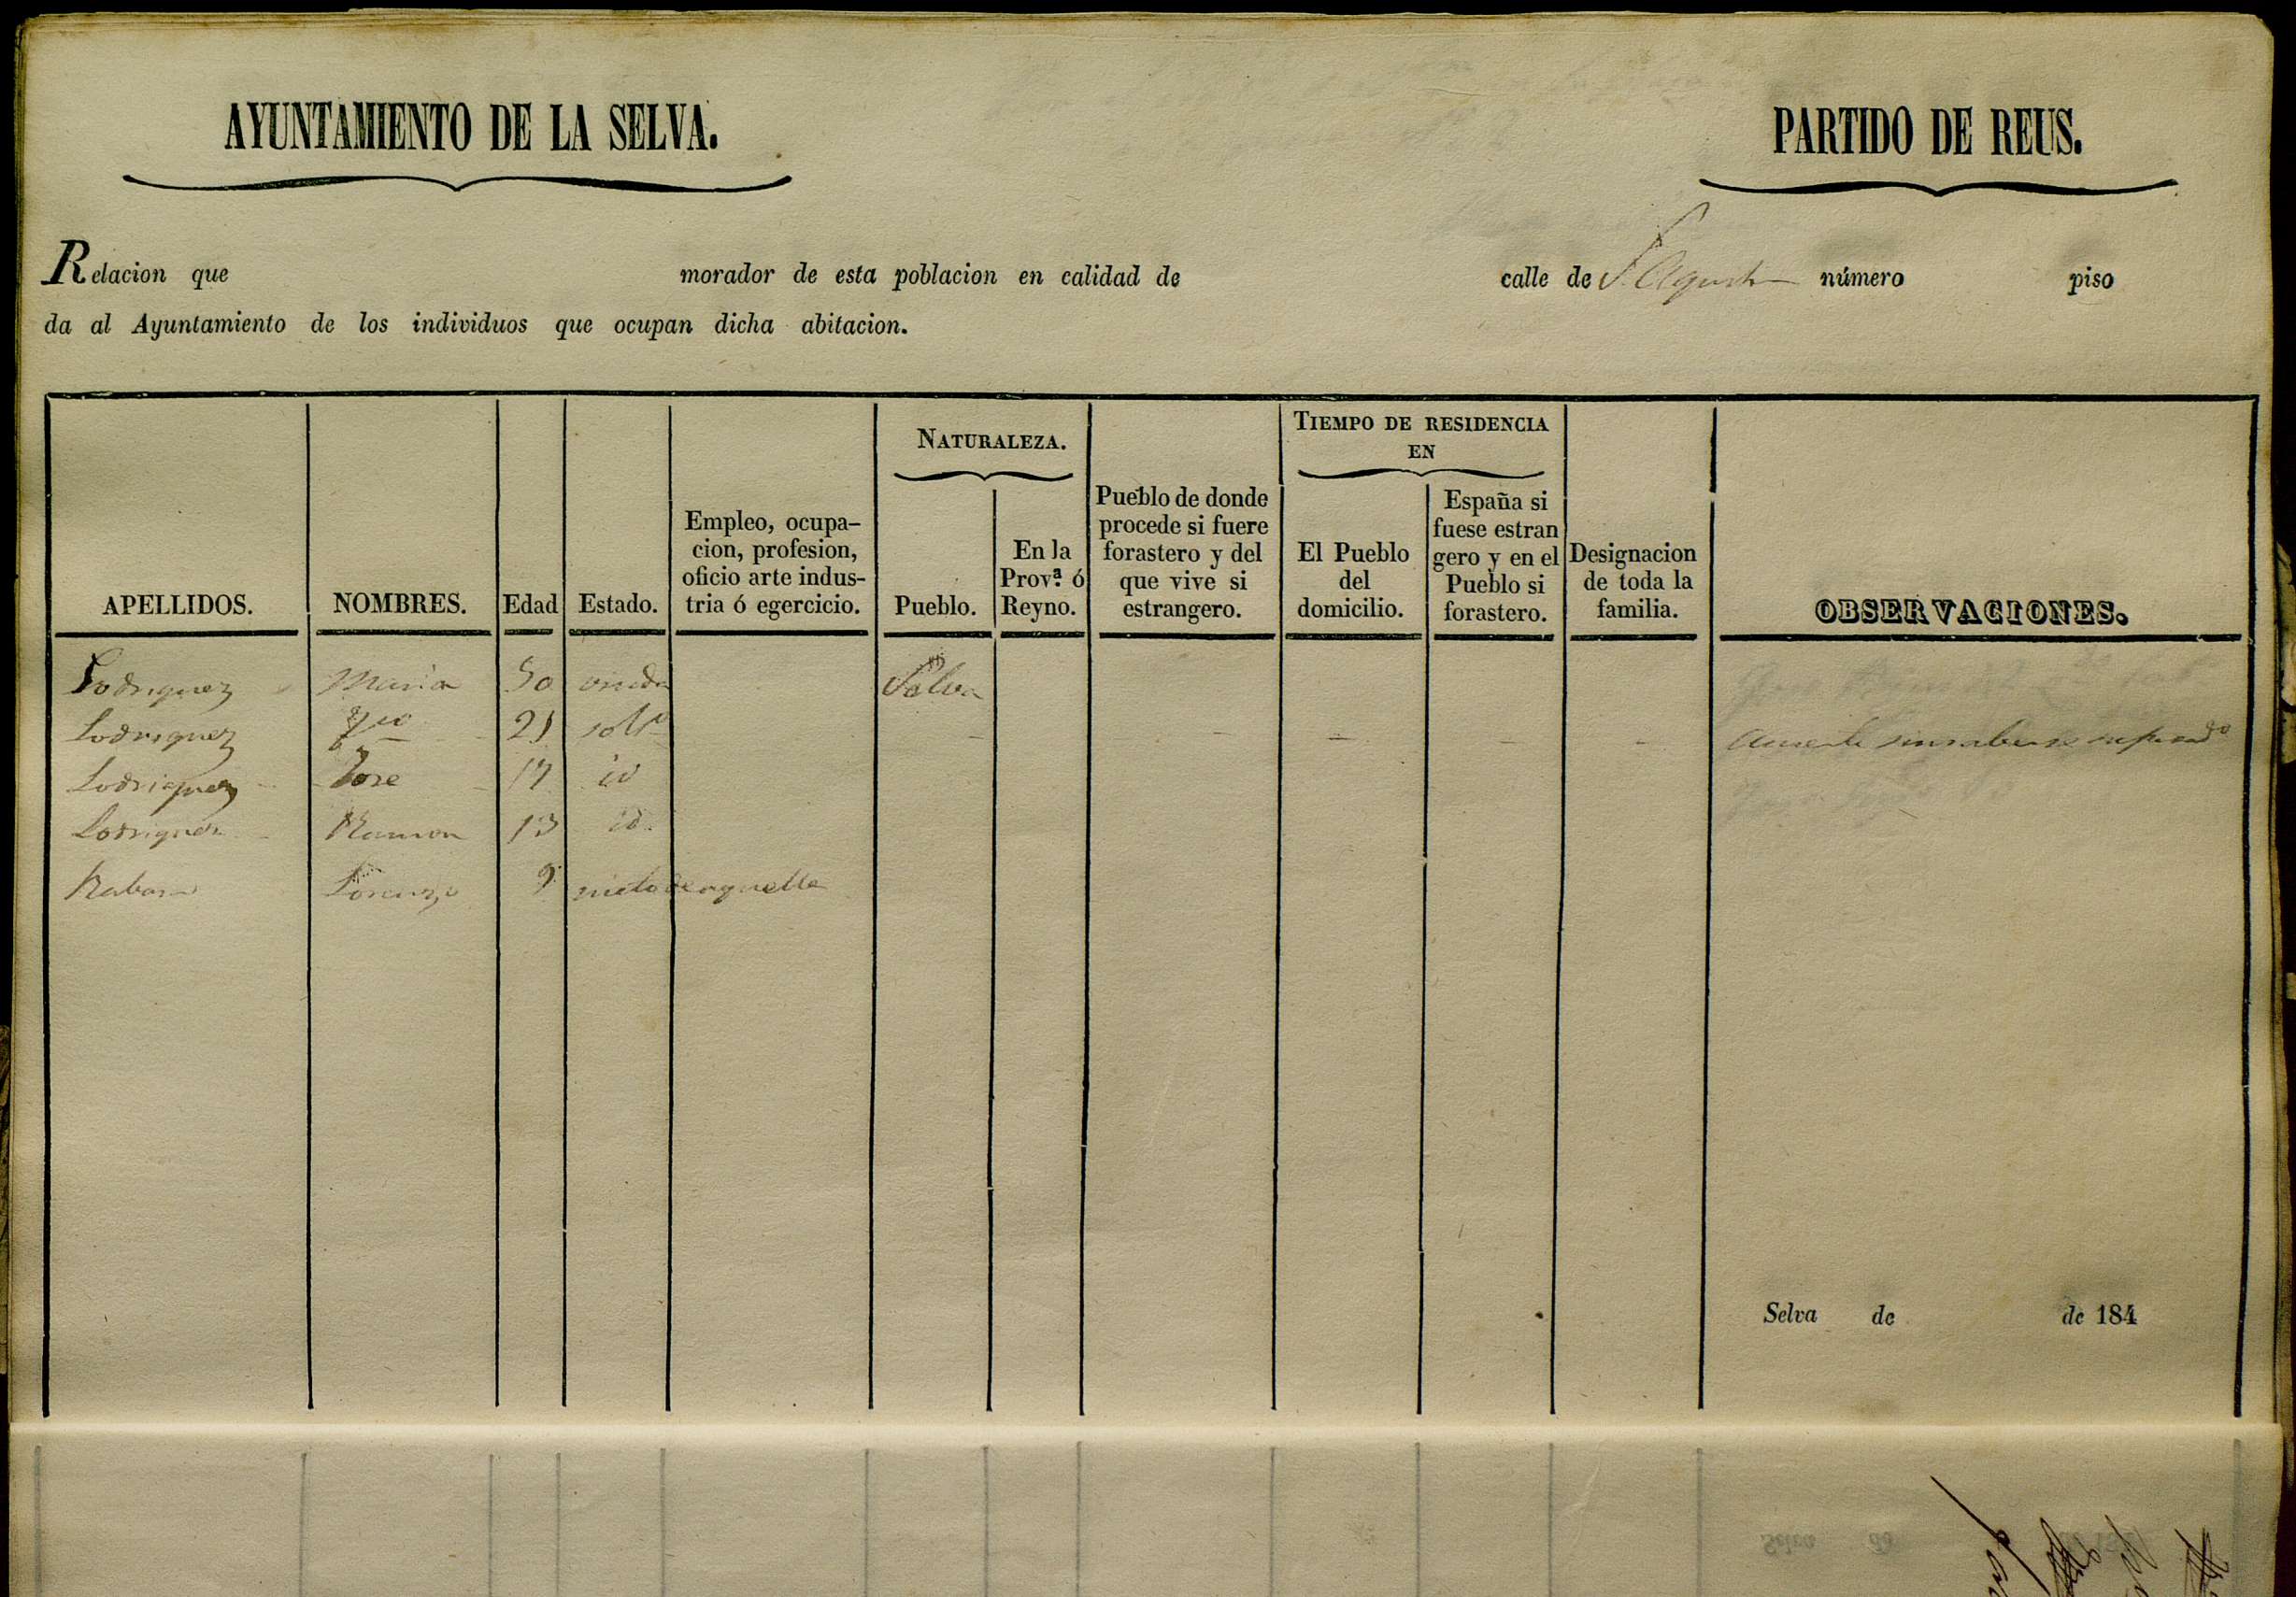 AYUNTAMIENTO DE LA SELVA.
PARTIDO DE REUS.
Relacion que morador de esta poblacion en calidad de calle de S. Agustin número piso
da al Ayuntamiento de los individuos que ocupan dicha abitacion.
APELLIDOS.
NOMBRES.
Edad
Estado.
Empleo, ocupa-
cion, profesion,
oficio arte indus-
tria ó egercicio.
NATURALEZA.
Pueblo.
En la
Prov.ª ó
Reyno.
Pueblo de donde
procede si fuere
forastero y del
que vive si
estrangero.
TIEMPO DE RESIDENCIA
EN
El Pueblo
del
domicilio.
España si
fuese estran
gero y en el
Pueblo si
forastero.
Designacion
de toda la
familia.
OBSERVACIONES.
Lodriguez Maria 50 viuda Selva
Lodriguez 21 solt.º
Lodriguez Jose 17 id
Lodriguez Ramon 13 id.
Lorenzo 9 nieto de aquella
Selva de de 184